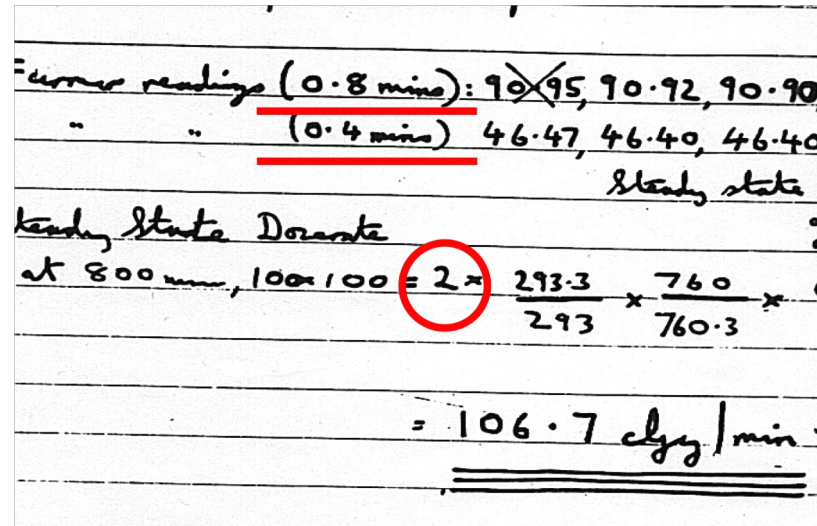 Farmer readings (0.8 mins): 90.95, 90.92, 90.90,
" " (0.4 mins) 46.47, 46.40, 46.40
Steady state
teady State Doserate
at 800 mm, 100x100 = 2 × 293.3/293 × 760/760.3 ×
= 106.7 cGy/min